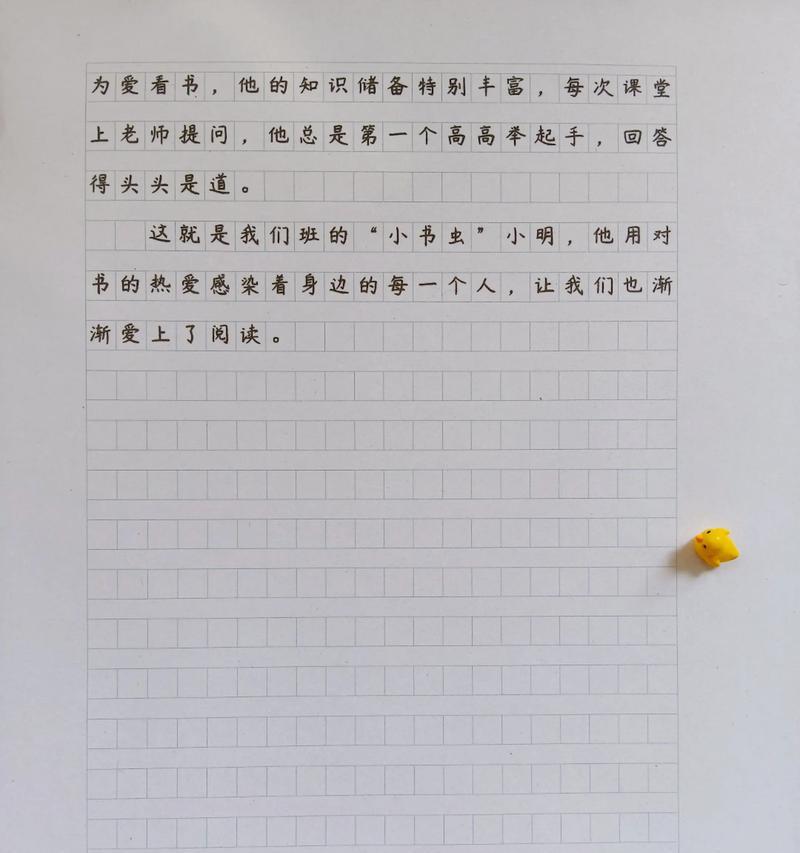 为爱看书，他的知识储备特别丰富，每次课堂
上老师提问，他总是第一个高高举起手，回答
得头头是道。
这就是我们班的“小书虫”小明，他用对
书的热爱感染着身边的每一个人，让我们也渐
渐爱上了阅读。